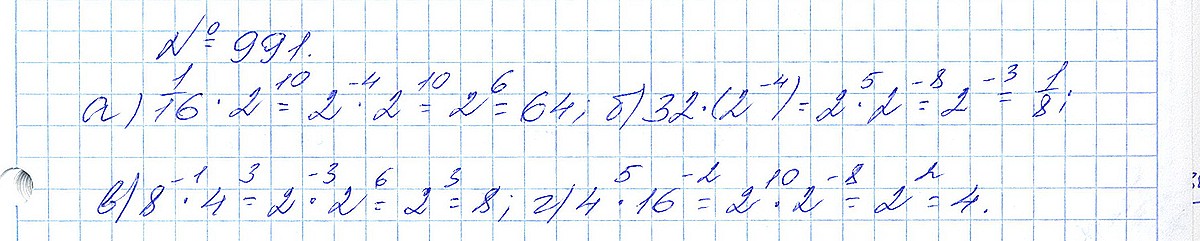 № 991.
а) 1/16 · 2^10 = 2^-4 · 2^10 = 2^6 = 64; б) 32 · (2^-4) = 2^5 · 2^-8 = 2^-3 = 1/8;
в) 8^-1 · 4^3 = 2^-3 · 2^6 = 2^3 = 8; г) 4^5 · 16^-2 = 2^10 · 2^-8 = 2^2 = 4.